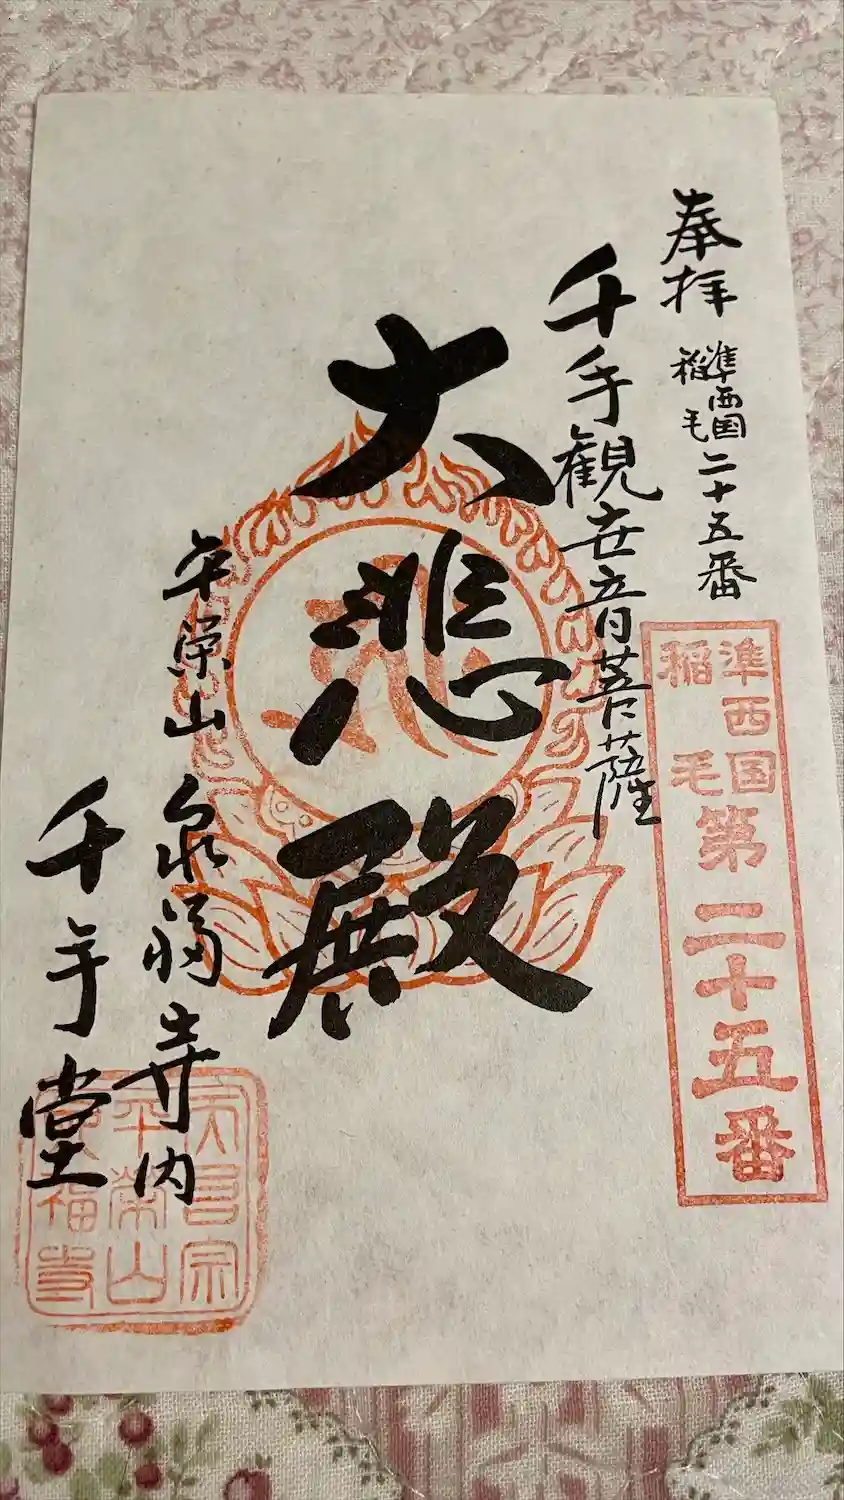 奉拝
準西国
稲毛
二十五番
準西国
稲毛
第二十五番
千手観世音菩薩
大悲殿
平榮山
泉福寺内
千手堂
天台宗
平榮山
泉福寺